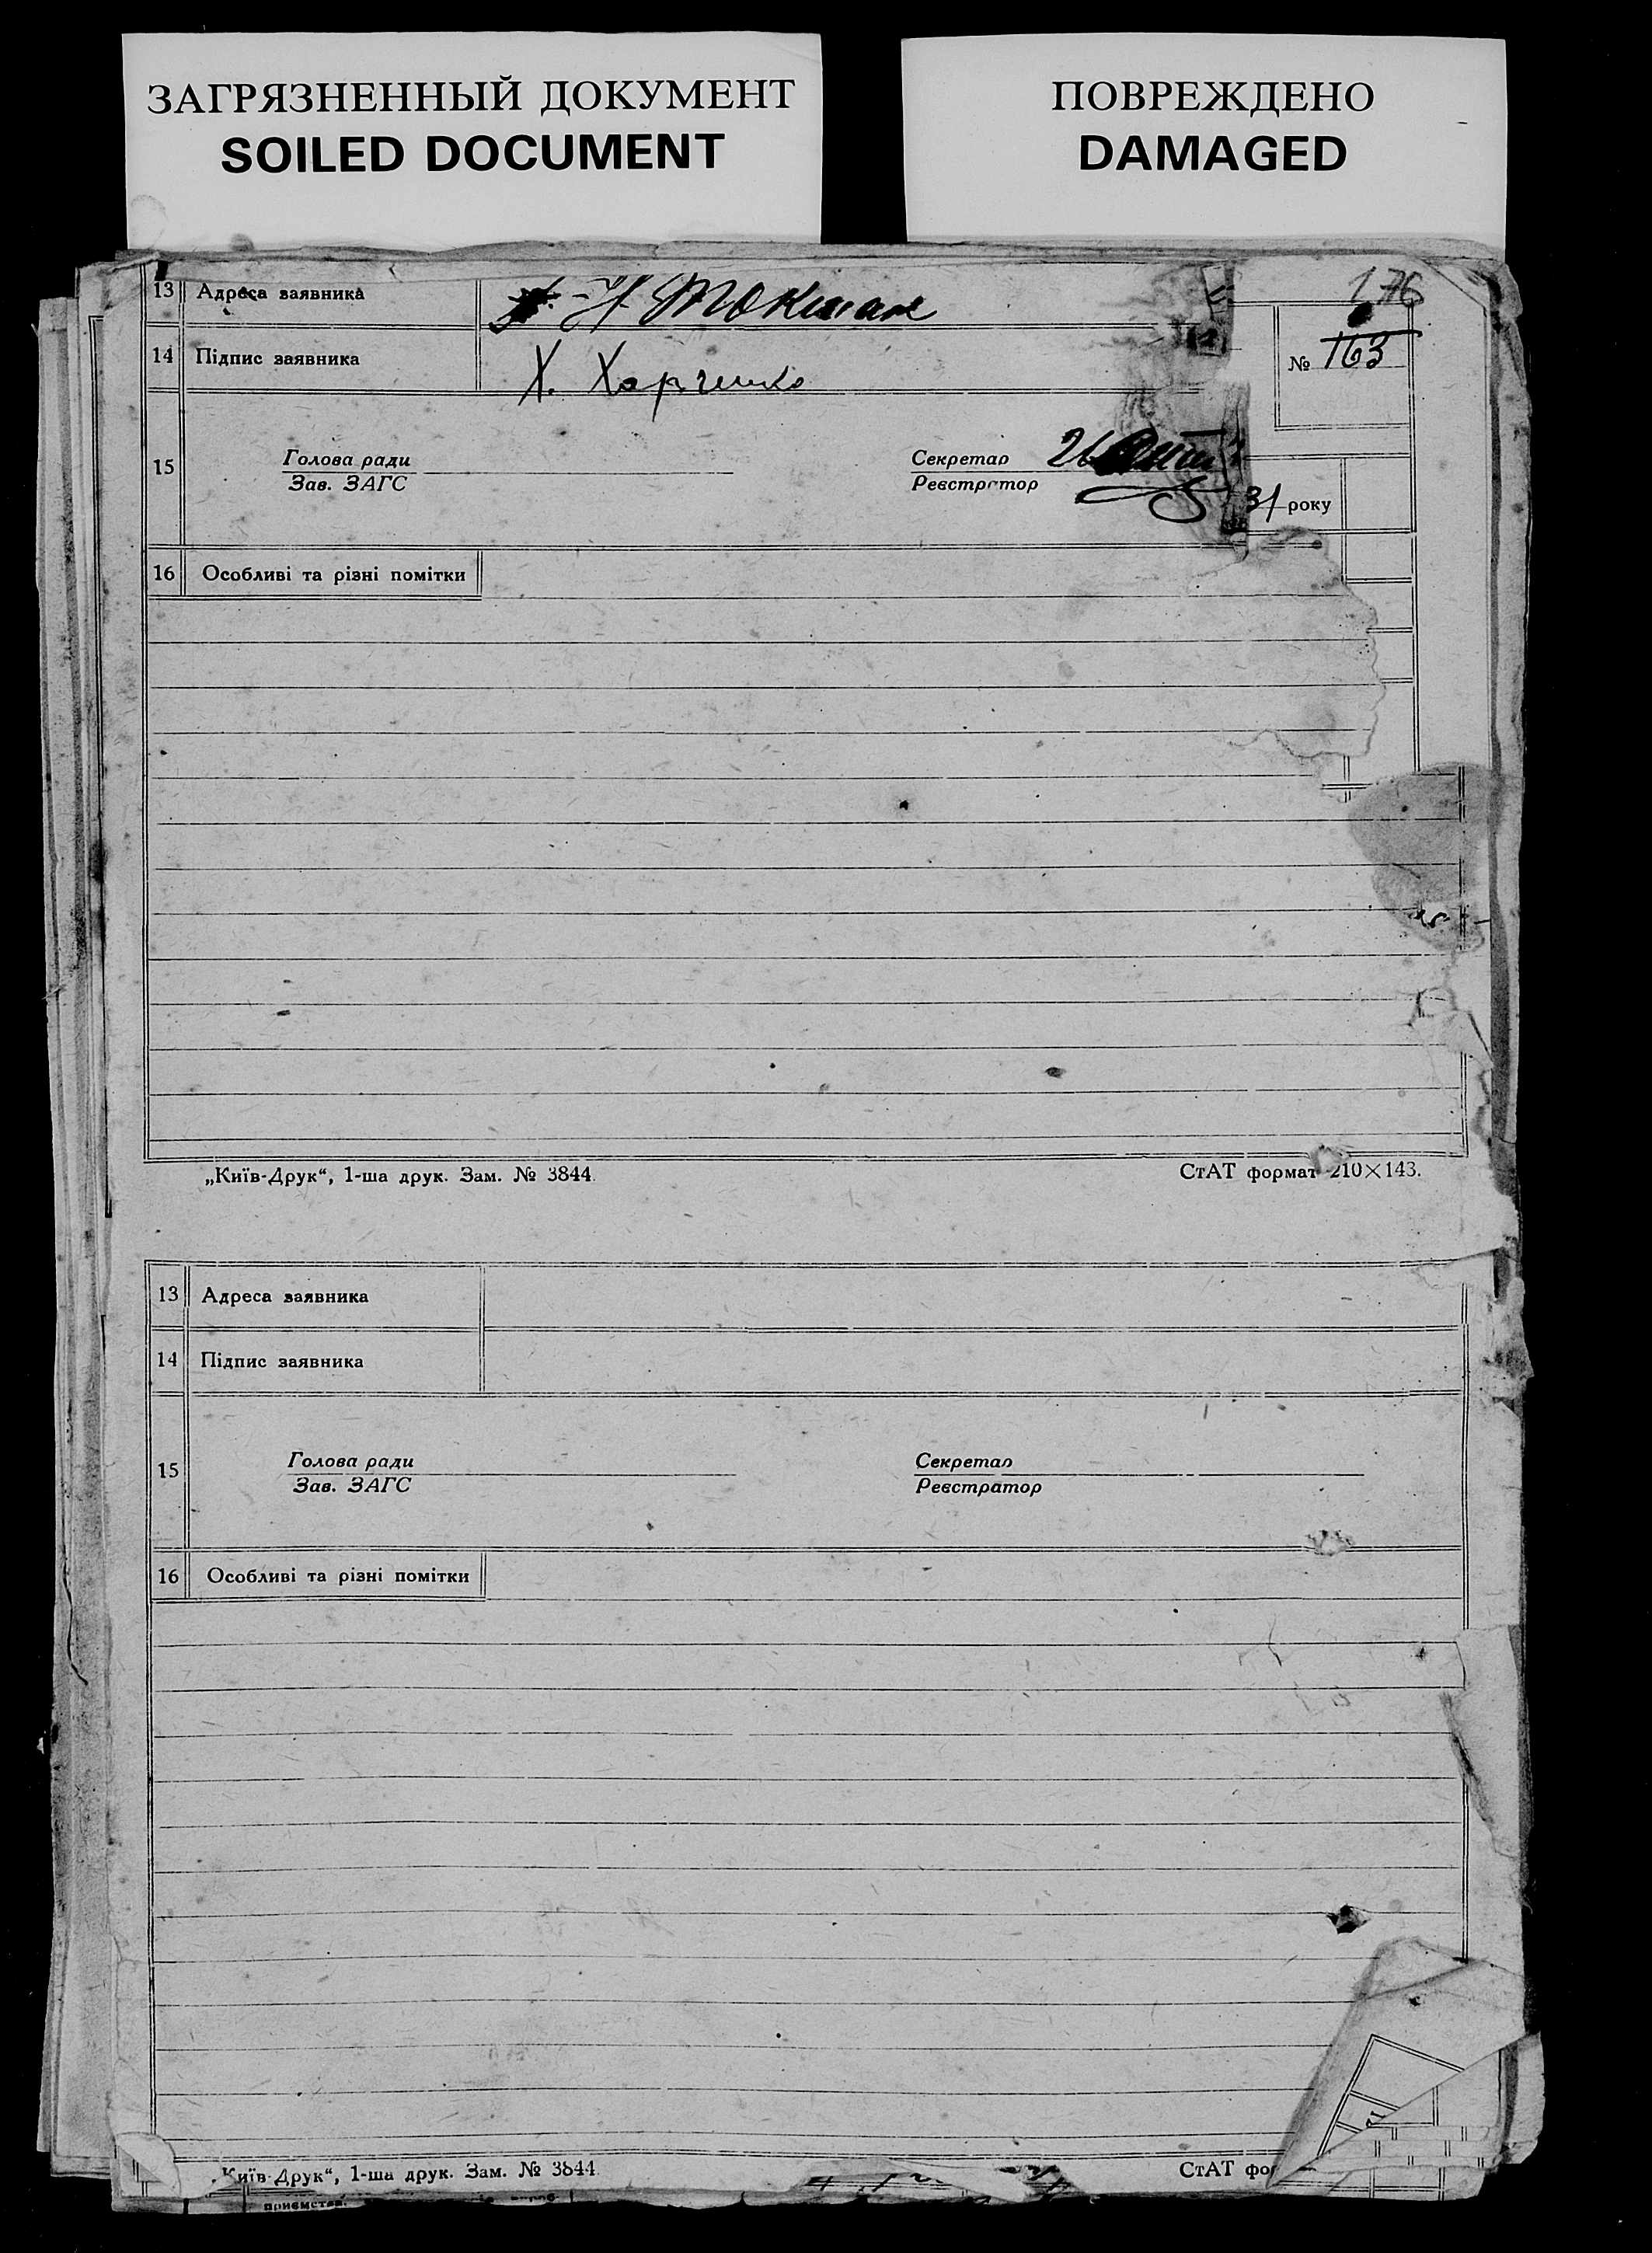 ЗАГРЯЗНЕННЫЙ ДОКУМЕНТ
SOILED DOCUMENT
ПОВРЕЖДЕНО
DAMAGED
176
13 Адреса заявника Н Токмак
14 Підпис заявника Х. Харченко
№ 163
15 Голова ради Секретар
Зав. ЗАГС Реєстратор
31 року
16 Особливі та різні помітки
„Київ-Друк“, 1-ша друк. Зам. № 3844. СтАТ формат 210×143.
13 Адреса заявника
14 Підпис заявника
15 Голова ради Секретар
Зав. ЗАГС Реєстратор
16 Особливі та різні помітки
„Київ-Друк“, 1-ша друк. Зам. № 3844. СтАТ фо